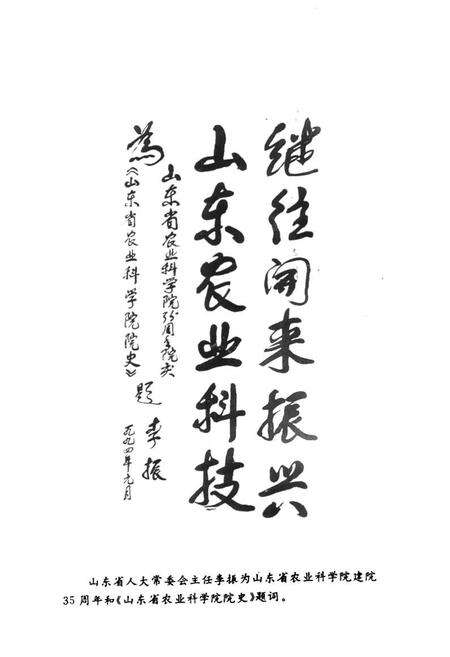 继往开来振兴
山东农业科技
为
山东省农业科学院35周年院庆
《山东省农业科学院院史》
题
李振
一九九四年元月
山东省人大常委会主任李振为山东省农业科学院建院
35周年和《山东省农业科学院院史》题词。